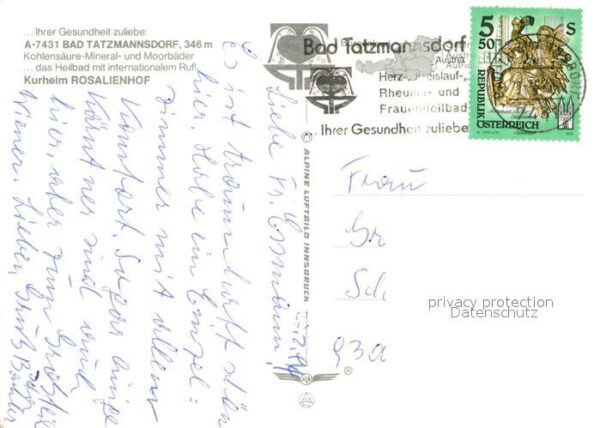 ... Ihrer Gesundheit zuliebe:
A-7431 BAD TATZMANNSDORF, 346 m
Kohlensäure-Mineral- und Moorbäder
... das Heilbad mit internationalem Ruf!
Kurheim ROSALIENHOF
Liebe Fr.
Es ist traumhaft schön
hier. Habe ein Einzel=
zimmer mit allem
Komfort. Sogar einige
Kärntner sind auch
hier, aber zum Großteil
Wiener. Lieben Gruß
© ALPINE LUFTBILD INNSBRUCK
Bad Tatzmannsdorf
Herz-, Kreislauf-,
Rheuma- und
Frauenheilbad
... Ihrer Gesundheit zuliebe
5 50 S
REPUBLIK
ÖSTERREICH
Frau
Sch
93a
privacy protection
Datenschutz